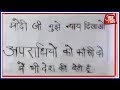 आज तक
मोदी जी मुझे न्याय दिलाओ
अपराधियो को फाँसी दो
मैं भी देश की बेटी हूँ